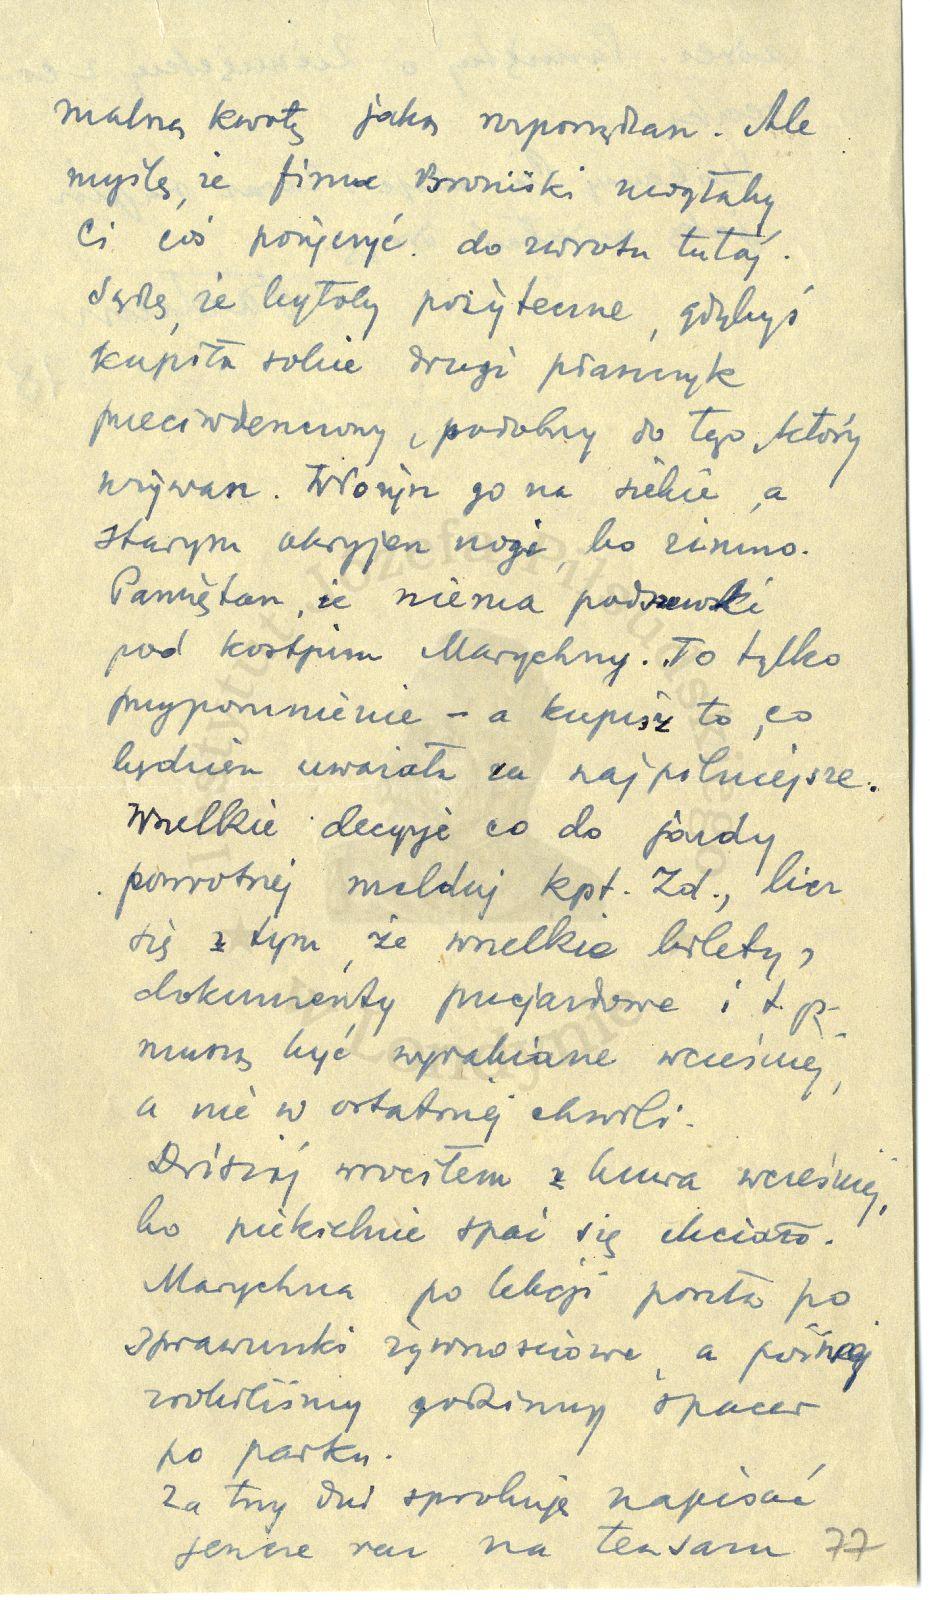 malną kwotą jaką rozporządzasz. Ale
myślę, że firma Broniski mogłaby
Ci coś pożyczyć. do zwrotu tutaj.
Sądzę, że byłoby pożyteczne, gdybyś
kupiła sobie drugi płaszczyk
przeciwdeszczowy, podobny do tego, który
używasz. Włożysz go na siebie, a
starym okryjesz nogi, bo zimno.
Pamiętasz, że niema podszewki
pod kostjum Marychny. To tylko
przypomnienie – a kupisz to, co
będziesz uważała za najpilniejsze.
Wszelkie decyzje co do jazdy
powrotnej melduj kpt. Zd., licz
się z tym, że wszelkie bilety,
dokumenty przejazdowe i t.p.
muszą być wyrabiane wcześniej,
a nie w ostatniej chwili.
Dzisiaj wróciłem z biura wcześniej,
bo piekielnie spać się chciało.
Marychna po lekcji poszła po
sprawunki żywnościowe, a później
zrobiliśmy godzinny spacer
po parku.
Za trzy dni spróbuję napisać
jeszcze raz na ten sam 77
Instytut Józefa Piłsudskiego
w Londynie